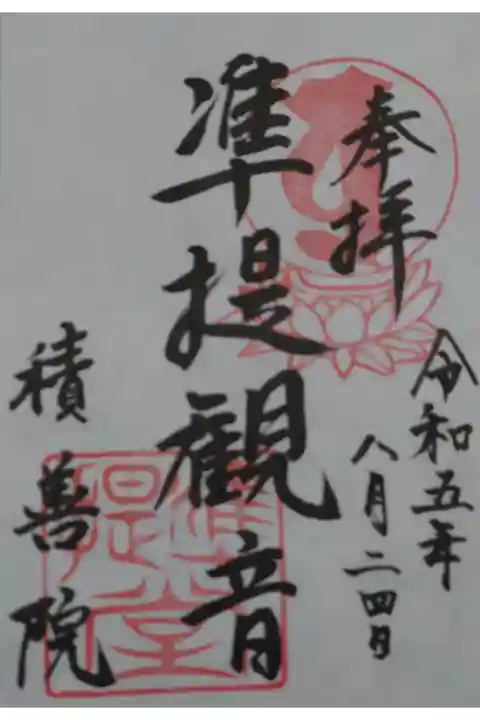 奉拝
令和五年
八月二四日
準提観音
積善院
準提堂